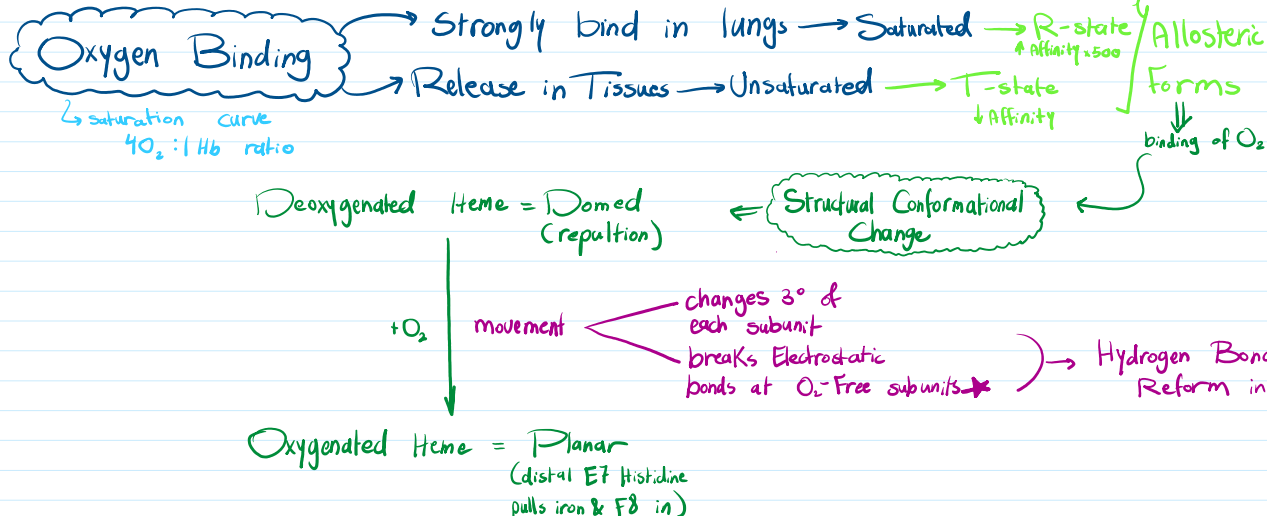 Oxygen Binding
Strongly bind in lungs → Saturated → R-state
↑ Affinity x500
Release in Tissues → Unsaturated → T-state
↓ Affinity
Allosteric
Forms
↳ saturation curve
4O₂ : 1 Hb ratio
binding of O₂
Structural Conformational
Change
Deoxygenated Heme = Domed
(repultion)
+O₂
movement
changes 3° of
each subunit
breaks Electrostatic
bonds at O₂-Free subunits ★
→ Hydrogen Bond
Reform in
Oxygenated Heme = Planar
(distal E7 Histidine
pulls iron & F8 in)